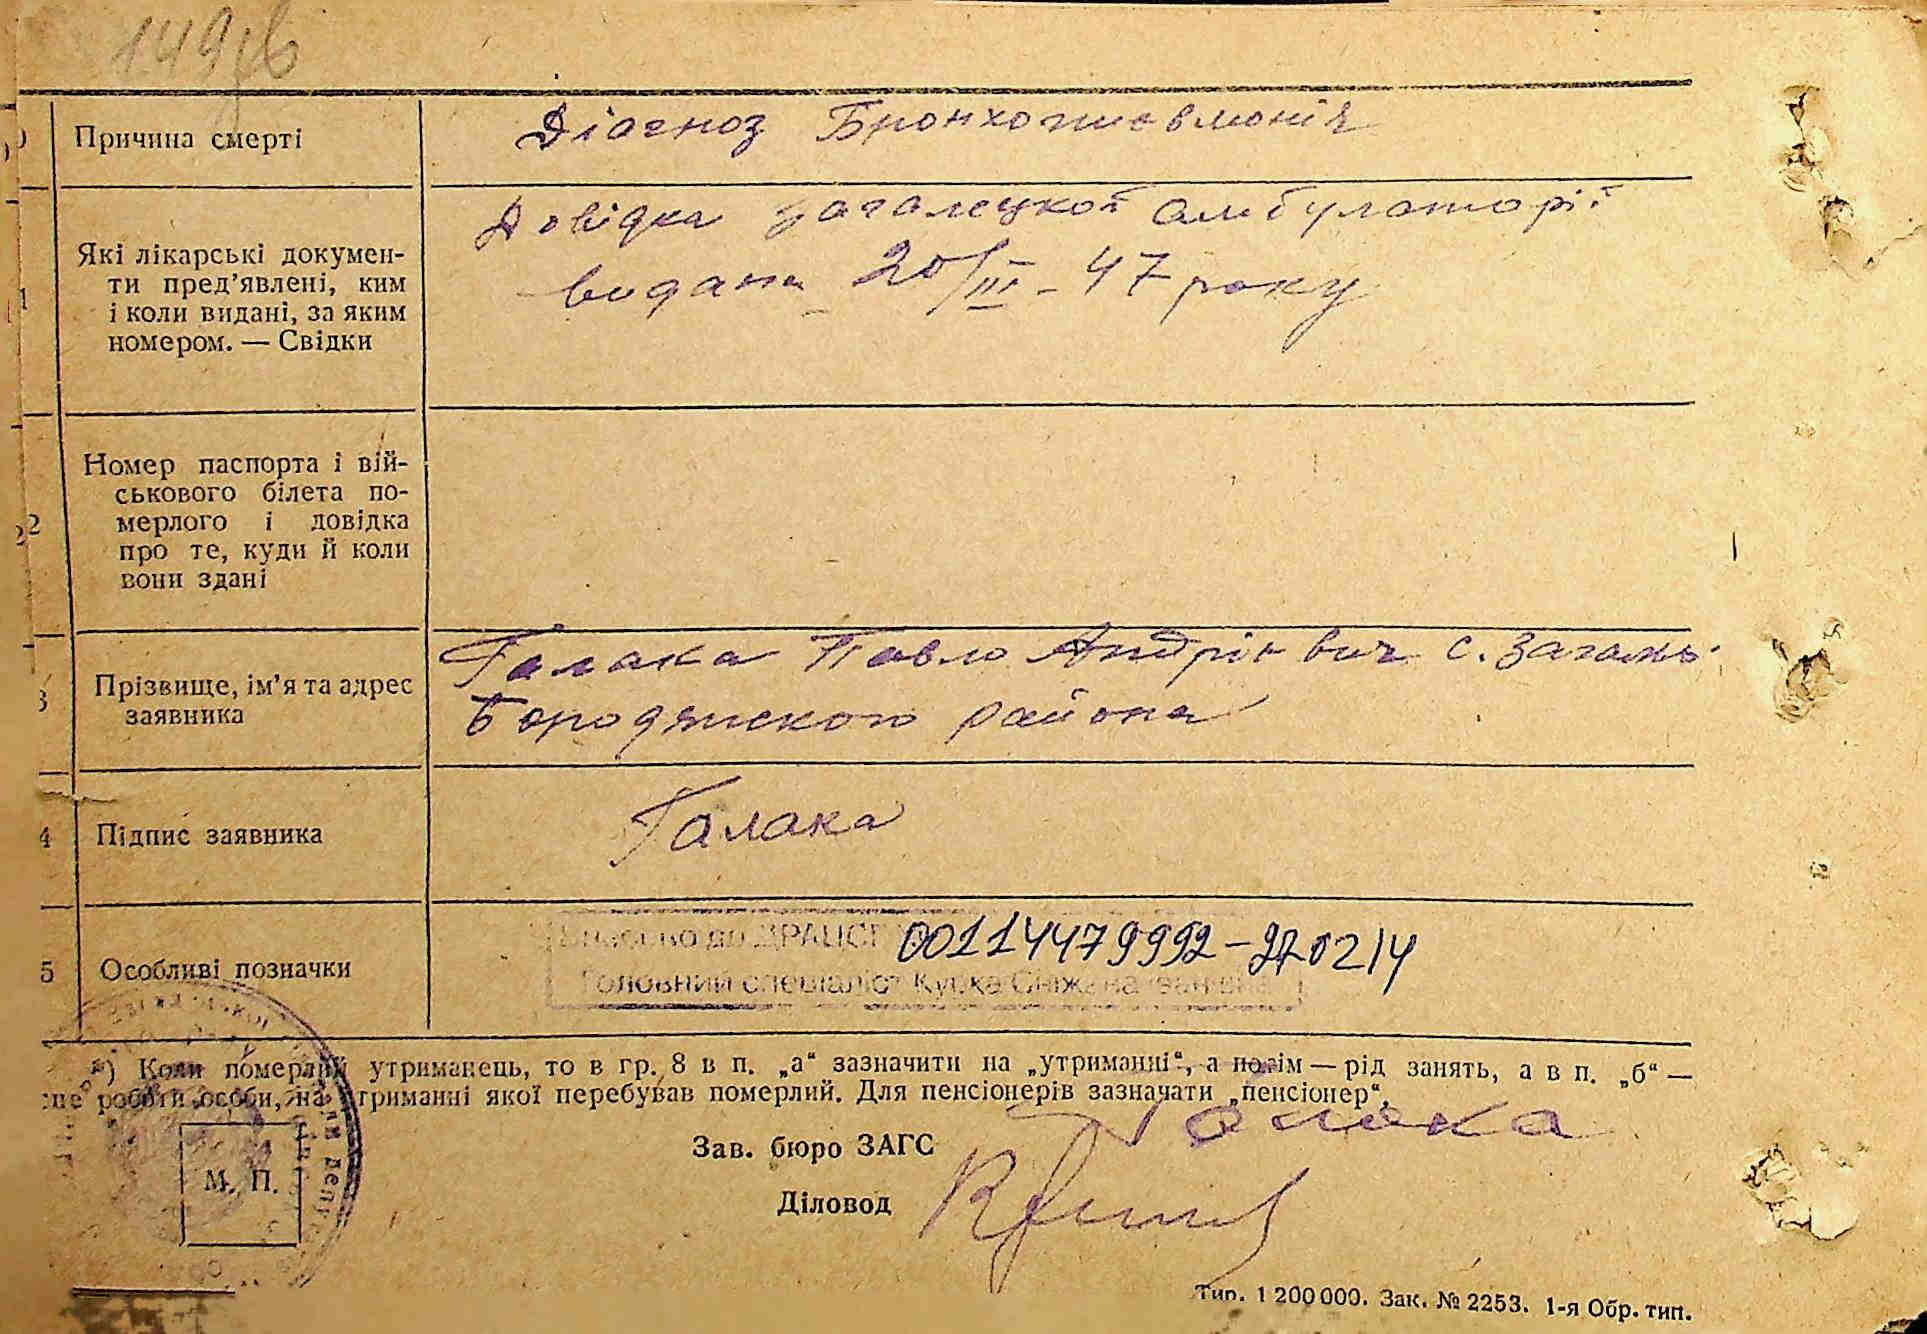 149/6
Причина смерті
Діагноз Бронхопневмонія
Які лікарські докумен-
ти пред’явлені, ким
і коли видані, за яким
номером. — Свідки
Довідка загалецкої амбулаторії
видана 20/III - 47 року
2
Номер паспорта і вій-
ськового білета по-
мерлого і довідка
про те, куди й коли
вони здані
3
Прізвище, ім’я та адрес
заявника
Галака Павло Андрієвич с. Загальці
Бородянского района
4
Підпис заявника
Галака
5
Особливі позначки
до ДРАЦСГ 00114479992-
Головний спеціаліст
*) Коли померлий утриманець, то в гр. 8 в п. „а“ зазначити на „утриманні“, а потім — рід занять, а в п. „б“ —
роботи особи, на утриманні якої перебував померлий. Для пенсіонерів зазначати „пенсіонер“.
Зав. бюро ЗАГС Галака
М. П.
Діловод
Тип. 1 200 000. Зак. № 2253. 1-я Обр. тип.